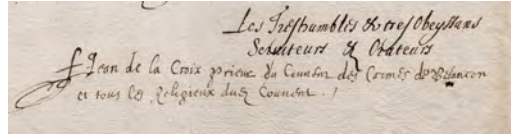 Les Treshumbles & tres Obeyssans
Seruiteurs & Orateurs
f Jean de la Croix prieur du Couuent des Carmes de Besancon
et tous les Religieux dud Couuent . /